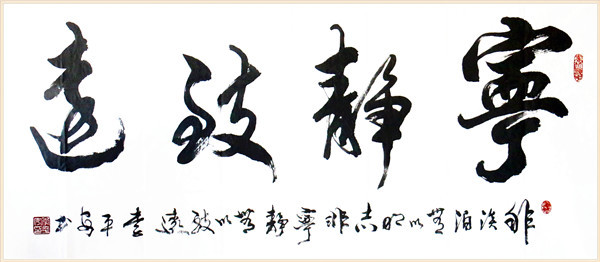 寧靜致遠
非淡泊無以明志非寧靜無以致遠